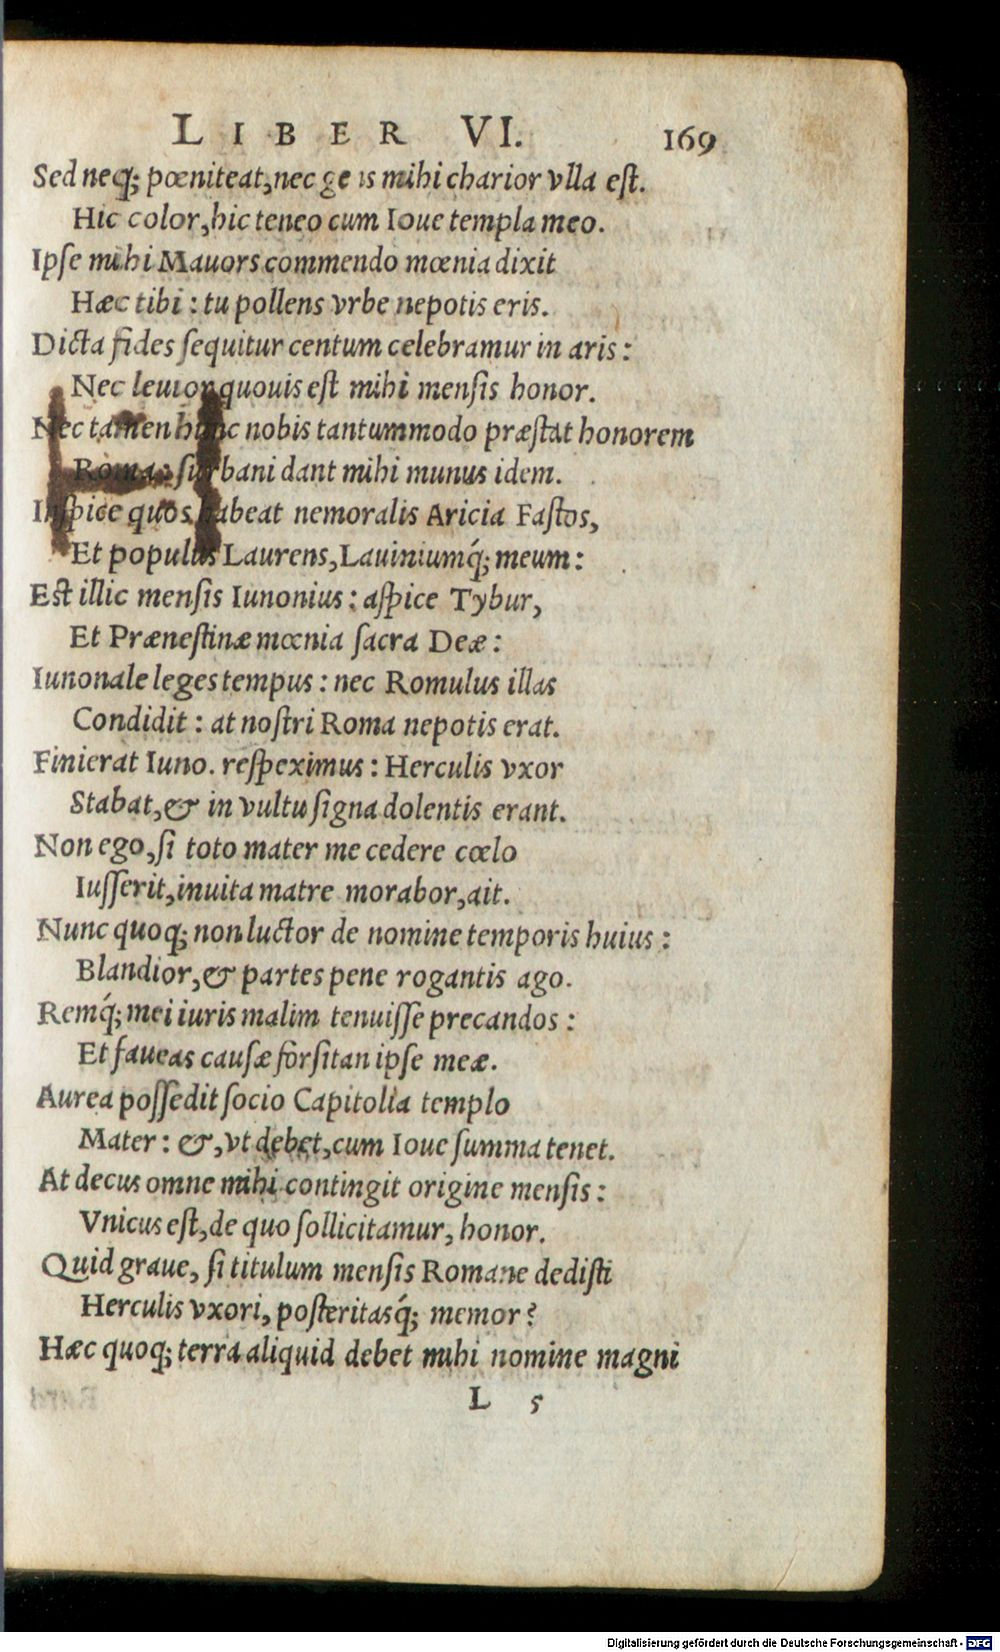 LIBER VI. 169
Sed neq; pœniteat, nec ge is mihi charior vlla est.
Hic color, hic teneo cum Ioue templa meo.
Ipse mihi Mauors commendo mœnia dixit
Hæc tibi: tu pollens vrbe nepotis eris.
Dicta fides sequitur centum celebramur in aris:
Nec leuior quouis est mihi mensis honor.
Nec tamen hunc nobis tantummodo præstat honorem
Roma: surbani dant mihi munus idem.
Inspice quos habeat nemoralis Aricia Fastos,
Et populus Laurens, Lauiniumq́; meum:
Est illic mensis Iunonius: aspice Tybur,
Et Prænestinæ mœnia sacra Deæ:
Iunonale leges tempus: nec Romulus illas
Condidit: at nostri Roma nepotis erat.
Finierat Iuno. respeximus: Herculis vxor
Stabat, & in vultu signa dolentis erant.
Non ego, si toto mater me cedere cœlo
Iusserit, inuita matre morabor, ait.
Nunc quoq; non luctor de nomine temporis huius:
Blandior, & partes pene rogantis ago.
Remq́; mei iuris malim tenuisse precandos:
Et faueas causæ forsitan ipse meæ.
Aurea possedit socio Capitolia templo
Mater: &, vt debet, cum Ioue summa tenet.
At decus omne mihi contingit origine mensis:
Vnicus est, de quo sollicitamur, honor.
Quid graue, si titulum mensis Romane dedisti
Herculis vxori, posteritasq́; memor?
Hæc quoq; terra aliquid debet mihi nomine magni
L 5
Digitalisierung gefördert durch die Deutsche Forschungsgemeinschaft - DFG